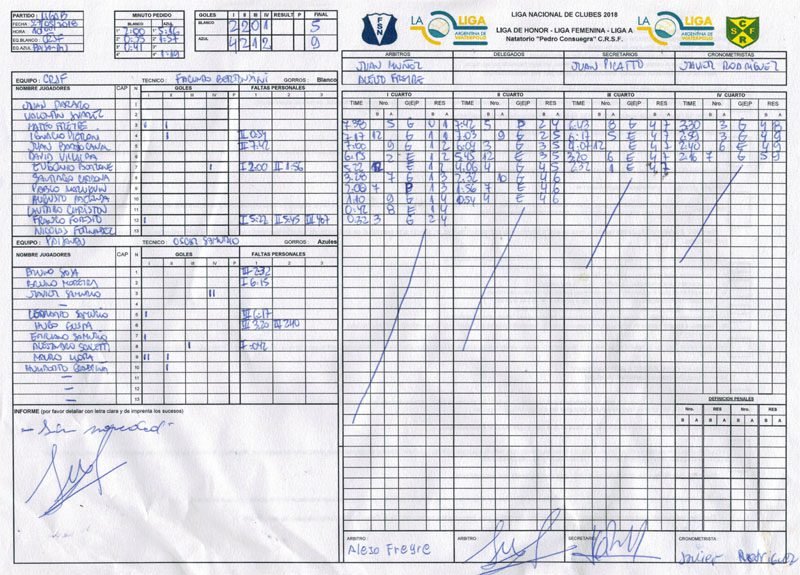 PARTIDO : LIGA B
FECHA : 27/05/2018
HORA
EQ.BLANCO : CRSF
EQ.AZUL
MINUTO PEDIDO
BLANCO AZUL
1° 2:00 1° 5:36
2° 0:35 2° 1:37
3° 0:41 3°
4° 4° 1:19
GOLES I II III IV RESULT P FINAL
BLANCO 2 2 0 1 5
AZUL 4 2 1 2 9
FSN
LA LIGA
ARGENTINA DE WATERPOLO
LIGA NACIONAL DE CLUBES 2018
LIGA DE HONOR - LIGA FEMENINA - LIGA A
Natatorio "Pedro Consuegra" C.R.S.F.
LA LIGA
ARGENTINA DE WATERPOLO
CRSF
ARBITROS DELEGADOS SECRETARIOS CRONOMETRISTAS
JUAN MUÑOZ JUAN PICATTO JAVIER RODRIGUEZ
ALEJO FREYRE
EQUIPO : CRSF TECNICO : FACUNDO GORROS: Blanco
NOMBRE JUGADORES CAP N GOLES FALTAS PERSONALES
I II III IV P 1 2 3
JUAN 1
VALENTIN SUAREZ 2
MATEO FREYRE 3
IGNACIO 4 III 0:54
JUAN 5 II 7:42
DAVID VILLALBA 6
EUGENIO 7 I 2:00 II 1:56
SANTIAGO 8
PABLO 9
AUGUSTO 10
LAUTARO CHRISTON 11
FRANCO 12 I 5:22 II 5:45 III 4:07
NICOLAS FERNANDEZ 13
EQUIPO : TECNICO : OSCAR SAMURIO GORROS : Azules
NOMBRE JUGADORES CAP N GOLES FALTAS PERSONALES
I II III IV P 1 2 3
BRUNO SOSA 1 III 2:32
BRUNO MOREIRA 2 I 6:15
JAVIER SAMURIO 3
4
LEONARDO SAMURIO 5 III 6:17
HUGO 6 III 3:20 IV 2:40
EMILIANO SAMURIO 7
ALESSANDRO 8 I 0:42
MAURO MORA 9
HUMBERTO 10
11
12
13
I CUARTO II CUARTO III CUARTO IV CUARTO
TIME Nro. G|E|P RES TIME Nro. G|E|P RES TIME Nro. G|E|P RES TIME Nro. G|E|P RES
B A B A B A B A B A B A B A B A
7:38 5 G 0 1 7:42 5 P 2 4 6:43 8 G 4 7 3:30 3 G 4 8
7:17 12 G 1 1 7:03 9 G 2 5 6:17 5 E 4 7 2:59 3 G 4 9
7:00 9 G 1 2 6:04 3 G 3 5 4:07 12 E 4 7 2:40 6 E 4 9
6:15 2 E 1 2 5:45 12 E 3 5 3:20 6 E 4 7 2:16 7 G 5 9
5:22 12 E 1 2 4:06 4 G 4 5 2:32 1 E 4 7
3:28 7 G 1 3 2:32 10 G 4 6
2:00 7 P 1 3 1:56 7 E 4 6
1:10 9 G 1 4 0:54 4 E 4 6
0:42 8 E 1 4
0:32 3 G 2 4
INFORME (por favor detallar con letra clara y de imprenta los sucesos)
- Sin novedad -
DEFINICION PENALES
Nro. RES Nro. RES
B A B A B A B A
ARBITRO ARBITRO SECRETARIO CRONOMETRISTA :
Alejo Freyre Javier Rodriguez